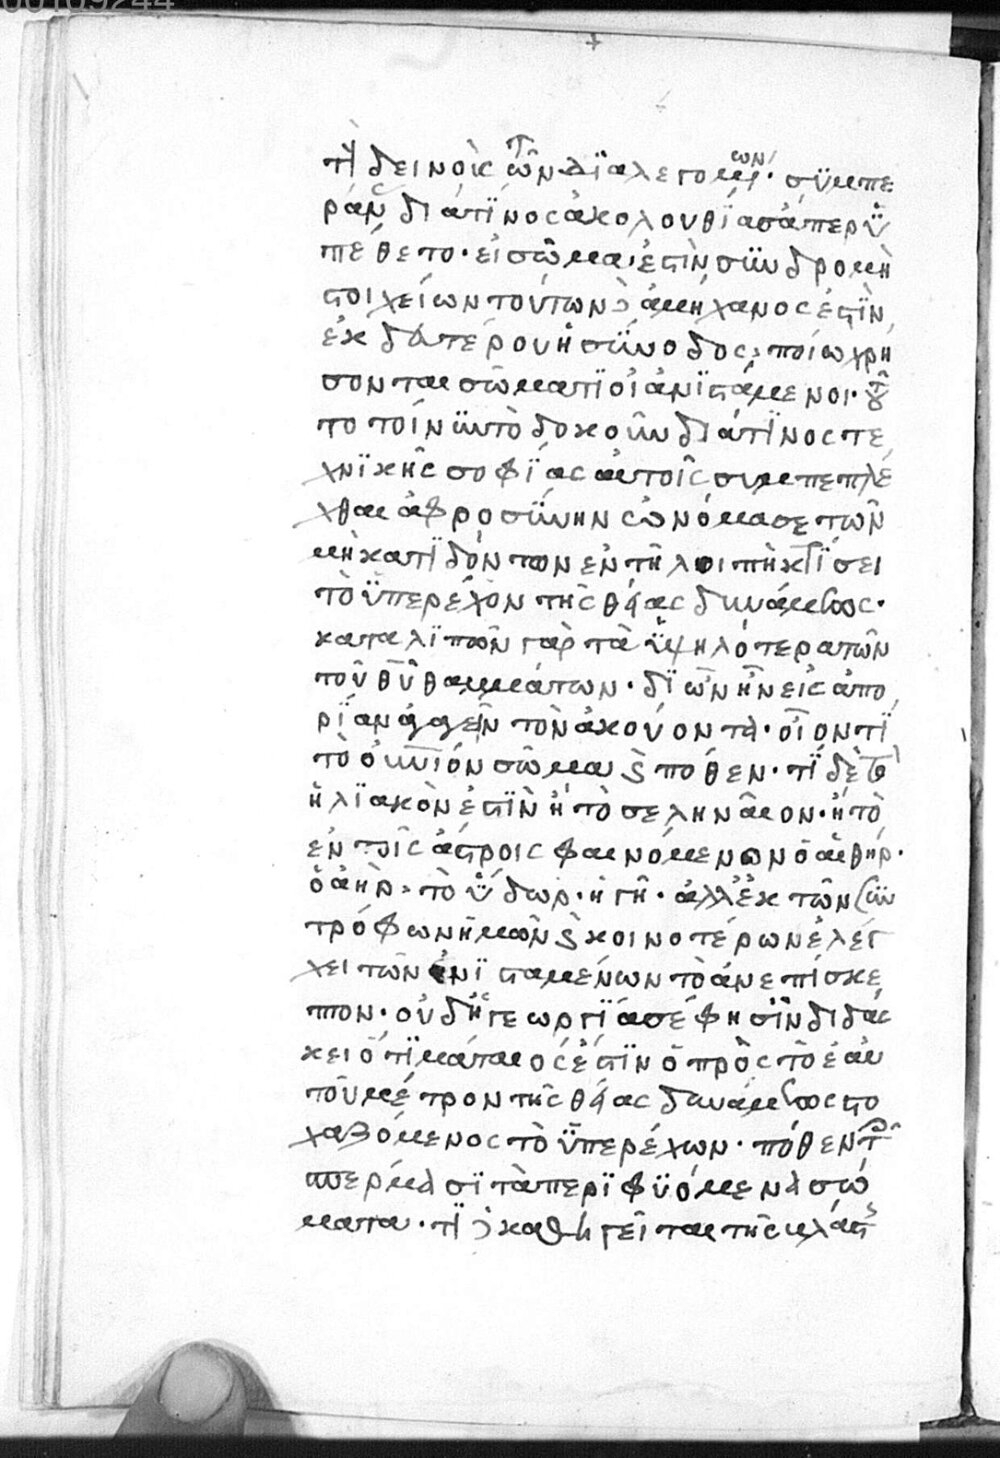 τῇ δεινοὶκ τῶν διαλεγομένων· συμπε
ρὰν διά τινος ἀκολουθίας ἅπερ ὑ
πέθετο· εἰ σῶμα ἐστὶν συνδρομὴ
στοιχείων τούτων δὲ ἀμήχανος ἐστὶν
ἐκ δευτέρου ἡ σύνοδος, ποίω χρή
σονται σώματι οἱ ἀνιστάμενοι· τοῦ
το τοίνυν τὸ δοκοῦν διά τινος τε
χνικῆς σοφίας αὐτοῖς συμπεπλέ
χθαι ἀφροσύνην ὠνόμασε τῶν
μὴ κατιδόντων ἐν τῇ λοιπῇ κτίσει
τὸ ὑπερέχον τῆς θείας δυνάμεως·
καταλιπὼν γὰρ τὰ ὑψηλότερα τῶν
τοῦ θυ θαυμάτων· δι ὧν ἦν εἰς ἀπο
ρίαν ἀγαγεῖν τὸν ἀκούοντα· οἷον τί
τὸ οὐνιόν σῶμα καὶ πόθεν· τί δὲ τὸ
ἡλιακὸν ἐστὶν ἢ τὸ σεληναῖον· ἢ τὸ
ἐν τοῖς ἄστροις φαινόμενον ὁ αἰθήρ·
ὁ ἀήρ, τὸ ὕδωρ· ἡ γῆ· ἀλλ ἐκ τῶν συν
τρόφων ἡμῶν καὶ κοινοτέρων ἐλέγ
χει τῶν ἐνισταμένων τὸ ἀνεπίσκε
πτον· οὐδὴ γεωργία σέ φησὶν διδάσ
κει ὅτι μάταιος ἐστὶν ὁ πρὸς τὸ ἑαυ
τοῦ μέτρον τῆς θείας δυνάμεως στο
χαζόμενος τὸ ὑπερέχων· πόθεν τοῖς
σπέρμασι τὰ περιφυόμενα σώ
ματα· τί δὲ καθηγεῖται τῆς βλάστης